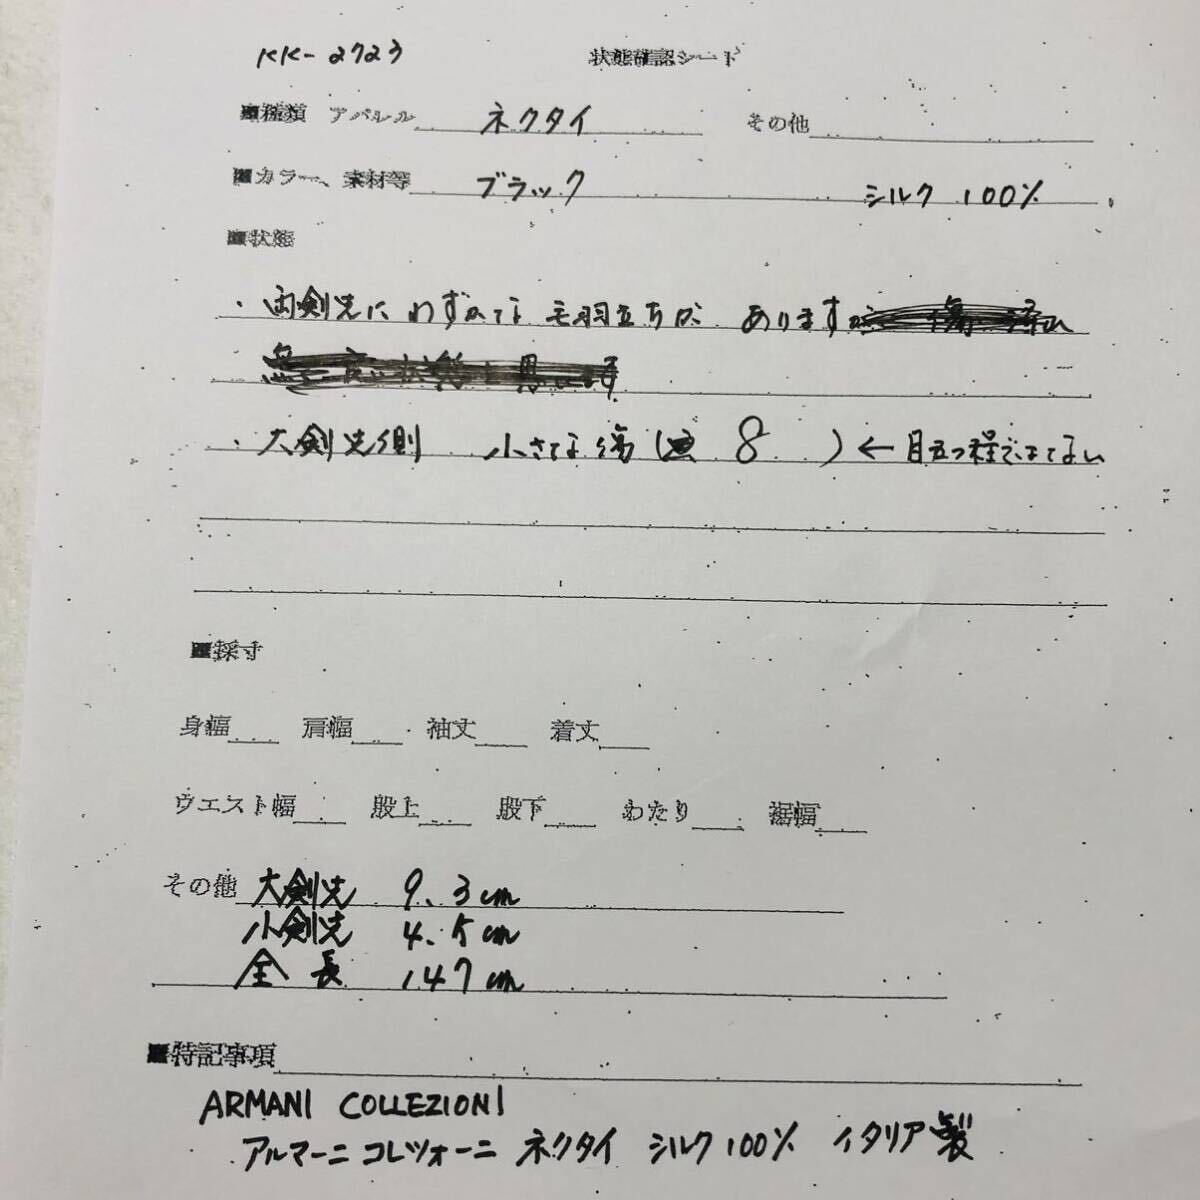 KK-2723 状態確認シート
■種類 アパレル ネクタイ その他
■カラー、素材等 ブラック シルク 100%
■状態
・両剣先に わずかな 毛羽立ちが あります
・大剣先側 小さな傷( 8 ) ← 目立つ程ではない
■採寸
身幅 肩幅 袖丈 着丈
ウエスト幅 股上 股下 わたり 裾幅
その他 大剣先 9.3cm
小剣先 4.5cm
全長 147cm
■特記事項
ARMANI COLLEZIONI
アルマーニ コレツォーニ ネクタイ シルク100% イタリア製